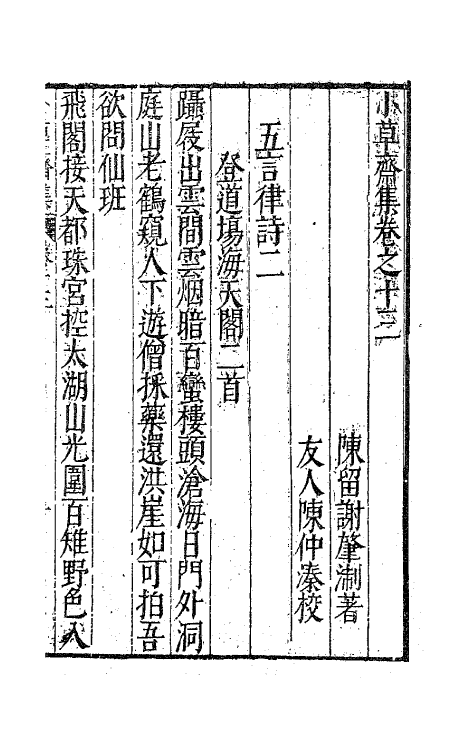 小草齋集卷之十三
陳留謝肇淛著
友人陳仲溱校
五言律詩二
登道場海天閣二首
躡屐出雲間雲烟暗百蠻樓頭滄海日門外洞
庭山老鶴窺人下遊僧採藥還洪崖如可拍吾
欲問仙班
飛閣接天都珠宮控太湖山光圍百雉野色入